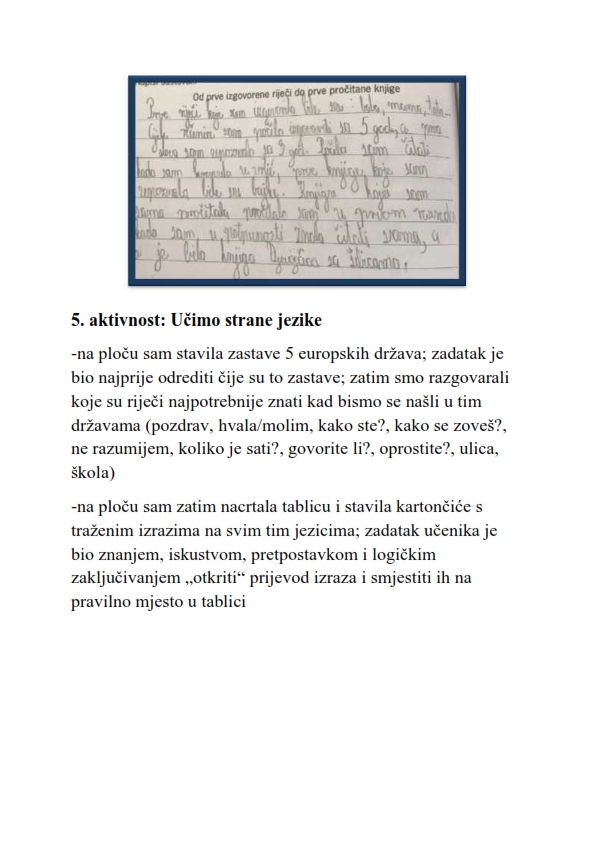 Od prve izgovorene riječi do prve pročitane knjige
Prve riječi koje sam izgovorila bile su: baba, mama, tata...
sam počela izgovarati sa 5 god, a prva
slova sam upoznala sa 3 god. Počela sam čitati
kada sam krenula u vrtić, prve knjige koje sam
upoznala bile su bajke. Knjiga koju sam
sama pročitala pročitala sam u prvom razredu
kada sam u potpunosti znala čitati sama, a
je bila knjiga Djevojčica sa šibicama.
5. aktivnost: Učimo strane jezike
-na ploču sam stavila zastave 5 europskih država; zadatak je
bio najprije odrediti čije su to zastave; zatim smo razgovarali
koje su riječi najpotrebnije znati kad bismo se našli u tim
državama (pozdrav, hvala/molim, kako ste?, kako se zoveš?,
ne razumijem, koliko je sati?, govorite li?, oprostite?, ulica,
škola)
-na ploču sam zatim nacrtala tablicu i stavila kartončiće s
traženim izrazima na svim tim jezicima; zadatak učenika je
bio znanjem, iskustvom, pretpostavkom i logičkim
zaključivanjem „otkriti“ prijevod izraza i smjestiti ih na
pravilno mjesto u tablici